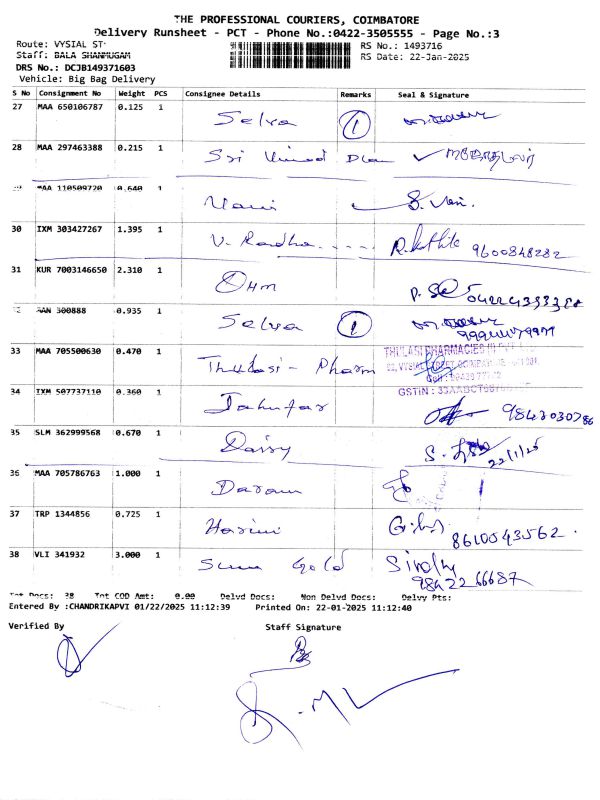 THE PROFESSIONAL COURIERS, COIMBATORE
Delivery Runsheet - PCT - Phone No.:0422-3505555 - Page No.:3
Route: VYSIAL ST
RS No.: 1493716
Staff: BALA SHANMUGAM
RS Date: 22-Jan-2025
DRS No.: DCJB149371603
Vehicle: Big Bag Delivery
S No Consignment No Weight PCS Consignee Details Remarks Seal & Signature
27 MAA 650106787 0.125 1 Selva 1
28 MAA 297463388 0.215 1 Sri Vinod
29 MAA 110509720 0.640 1 Mani S. Mani
30 IXM 303427267 1.395 1 V. Radha 9600848282
31 KUR 7003146650 2.310 1 OHM
32 AAN 300888 0.935 1 Selva 1
33 MAA 705500630 0.470 1 Thulasi - Pharm THULASI PHARMACIES
34 IXM 507737110 0.360 1 GSTIN :
35 SLM 362999568 0.670 1 Daisy 22/1/25
36 MAA 705786763 1.000 1
37 TRP 1344856 0.725 1 Harini 8610043562
38 VLI 341932 3.000 1 Gold 9842266687
Tot Docs: 38 Tot COD Amt: 0.00 Delvd Docs: Non Delvd Docs: Delvy Pts:
Entered By :CHANDRIKAPVI 01/22/2025 11:12:39 Printed On: 22-01-2025 11:12:40
Verified By Staff Signature